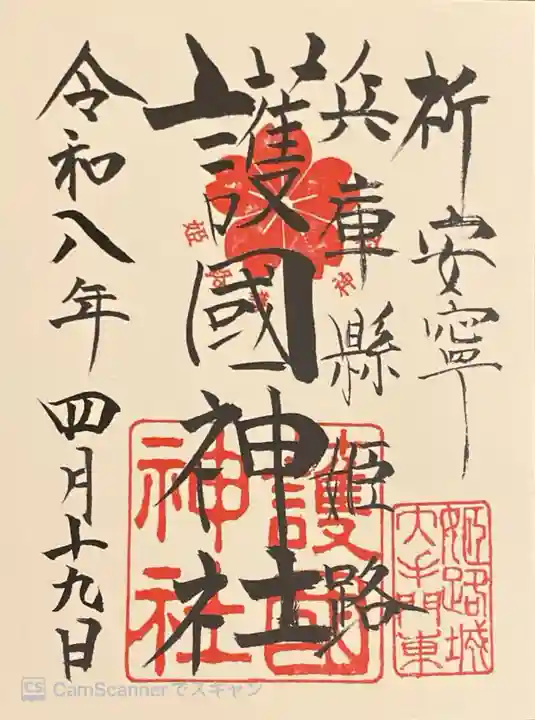 祈安寧
兵庫縣姫路
護國神社
令和八年四月十九日
護國
神社
姫路城
大手門東
CamScannerでスキャン